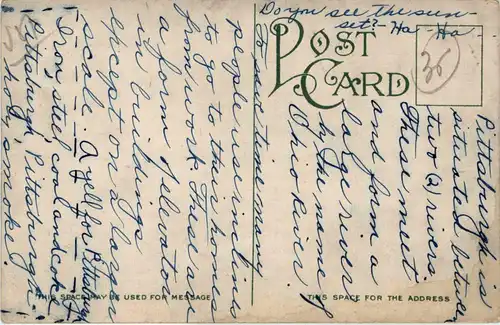 Do you see the sun
set?- Ha - Ha -
POST
CARD
36
Pittsburgh is
situated between
two (2) rivers.
These meet
and form a
large river
by the name
Ohio River.
To save time many
people use inclines
to go to their homes
from work. These are
a form of elevator
in buildings
except on a larger
scale. A yell for Pittsburgh
Iron, steel coal and coke,
Pittsburgh, Pittsburgh
holy smoke.
THIS SPACE MAY BE USED FOR MESSAGE
THIS SPACE FOR THE ADDRESS